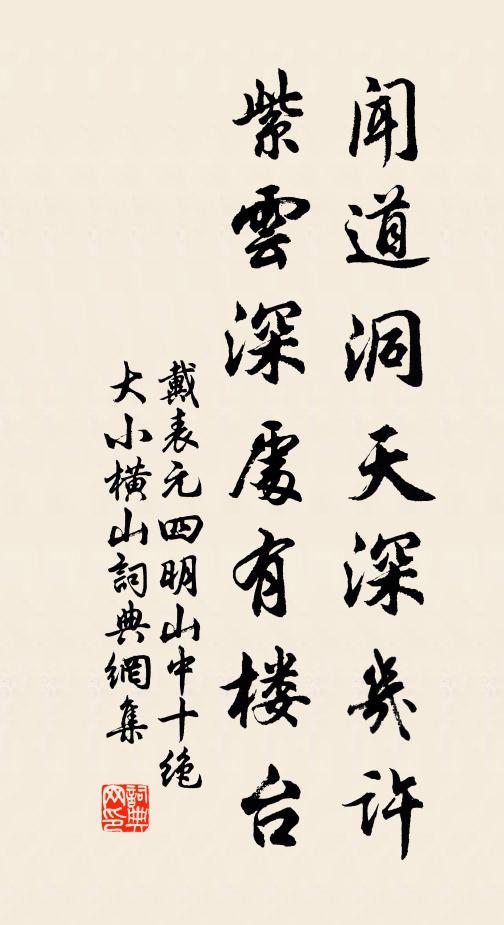 闻道洞天深幾许
紫雲深處有楼台
戴表元四明山中十绝
大小横山詞典網集
詞典网印